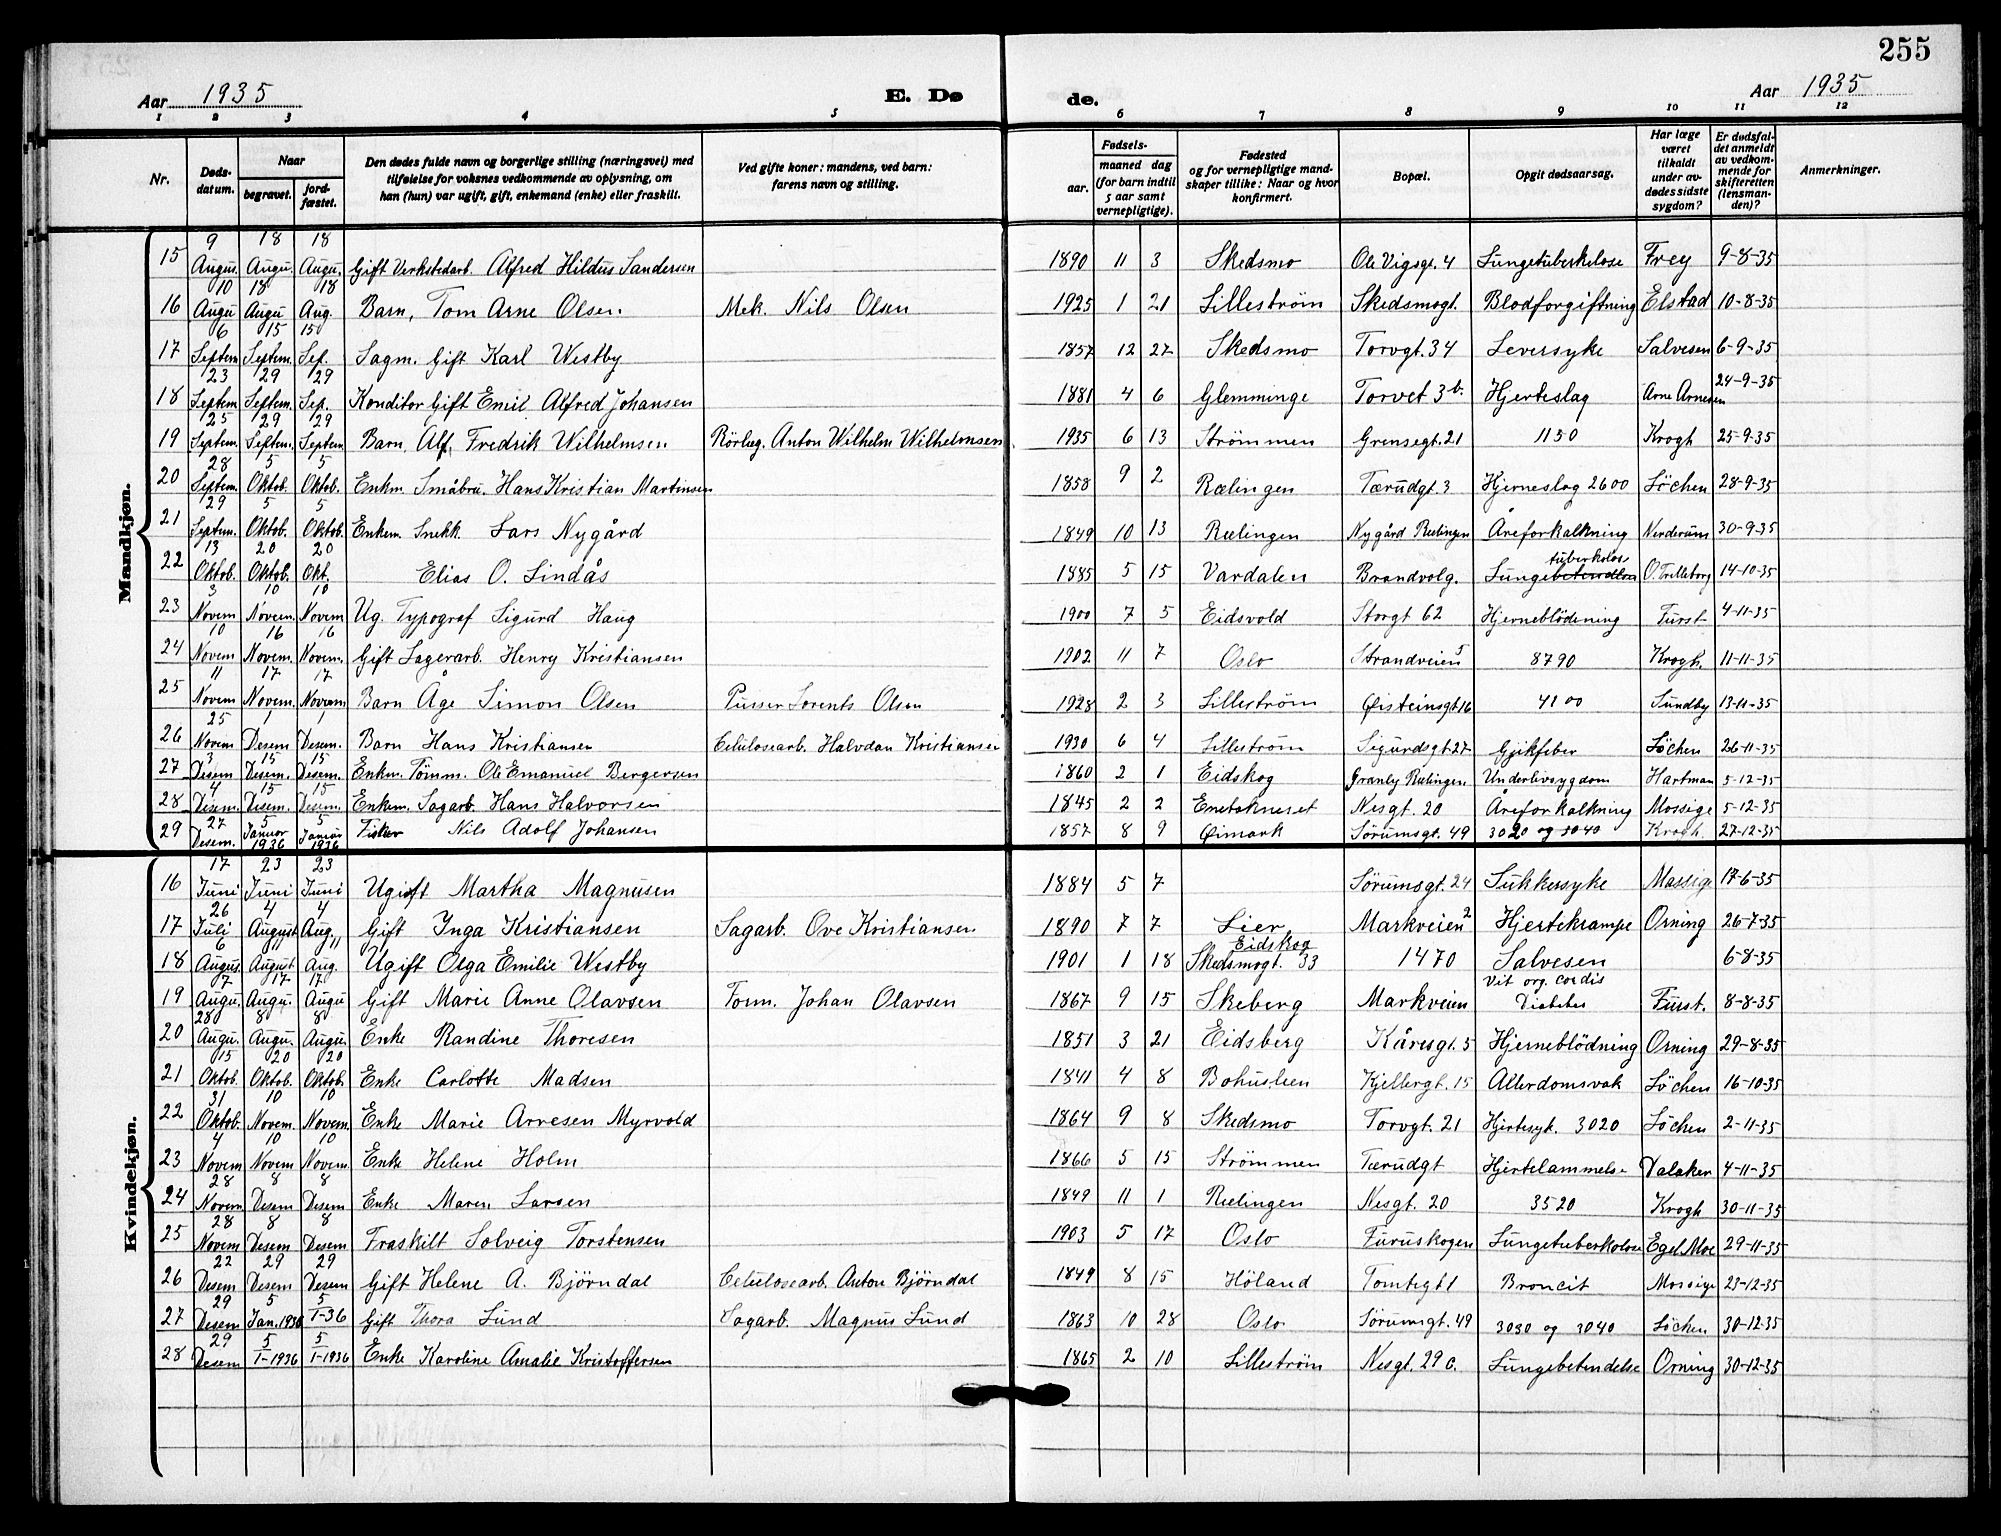 255
Aar 1935 E. Dø de. Aar 1935
1 2 3 4 5 6 7 8 9 10 11 12
Nr. Døds-datum. Naar begravet. jord-fæstet. Den dødes fulde navn og borgerlige stilling (næringsvei) med tilføielse for voksnes vedkommende av oplysning, om han (hun) var ugift, gift, enkemand (enke) eller fraskilt. Ved gifte koner: mandens, ved barn: farens navn og stilling. Fødsels- aar. maaned dag (for barn indtil 5 aar samt vernepligtige). Fødested og for vernepligtige mandskaper tillike: Naar og hvor konfirmert. Bopæl. Opgit dødsaarsag. Har læge været tilkaldt under avdødes sidste sygdom? Er dødsfaldet anmeldt av vedkommende for skifteretten (lensmanden)? Anmerkninger.
Mandkjøn.
15 9 Augus. 18 Augu. 18 Augu. Gift Verkstedarb. Alfred Hildus Sandersen 1890 11 3 Skedsmo Ole Vigsgt. 4 Lungetuberkelose Frey 9-8-35
16 10 Augu 18 Augu 18 Aug. Barn, Tom Arne Olsen. Mek. Nils Olsen 1925 1 21 Lillestrøm Skedsmogt. Blodforgiftning Elstad 10-8-35
17 6 Septem 15 Septem. 15 Sep. Sagm. Gift Karl Westby 1857 12 27 Skedsmo Torvgt. 34 Leversyke Salvesen 6-9-35
18 23 Septem 29 Septem. 29 Sep. Konditor Gift Emil Alfred Johansen 1881 4 6 Glemminge Torvet 3b. Hjerteslag Arne Arnesen 24-9-35
19 25 Septem. 29 Septem. 29 Septem Barn, Alf, Fredrik Wilhelmsen Rørlæg. Anton Wilhelm Wilhelmsen 1935 6 13 Strømmen Grensegt. 21 1150 Krogh 25-9-35
20 28 Septem. 5 Oktob. 5 Oktob. Enkm. Småbru. Hans Kristian Martinsen 1858 9 2 Rælingen Tærudgt. 3 Hjerneslag 2600 Løchen 28-9-35
21 29 Septem. 5 Oktob. 5 Oktob. Enkem. Snekk. Lars Nygård 1849 10 13 Rælingen Nygård Rælingen Åreforkalkning Nerderüm 30-9-35
22 13 Oktob. 20 Oktob. 20 Okt. Elias O. Lindås 1885 5 15 Vardalen Brandvolg. Lungetuberkolos O. Trilleborg 14-10-35
23 3 Novem 10 Novem. 10 Novem Ug. Typograf Sigurd Haug 1900 7 5 Eidsvold Storgt 62 Hjerneblödning Furst 4-11-35
24 10 Novem 16 Novem. 16 Novem. Gift Lagerarb. Henry Kristiansen 1902 11 7 Oslo Strandveien 5 8790 Krogh. 11-11-35
25 11 Novem 17 Novem. 17 Novem Barn Åge Simon Olsen Pusser Lorents Olsen 1928 2 3 Lillestrøm Øisteinsgt 16 4100 Sundby 13-11-35
26 25 Novem 1 Desem 1 Desem. Barn Hans Kristiansen Celulosearb. Halvdan Kristiansen 1930 6 4 Lillestrøm Sigurdsgt. 27 Gjikfeber Løchen 26-11-35
27 3 Desem 15 Desem. 15 Desem. Enkm. Tømm. Ole Emanuel Bergersen 1860 2 1 Eidskog Granly Rælingen Underlivssygdom Hartman 5-12-35
28 4 Desem. 15 Desem. 15 Desem. Enkem. Sagarb. Hans Halvorsen 1845 2 2 Enebakneset Nesgt. 20 Åreforkalkning Mossige 5-12-35
29 27 Desem. 5 Januar 1936 5 Januar 1936 Fisker Nils Adolf Johansen 1857 8 9 Øimark Sørumsgt. 49 3020 og 3040 Krogh. 27-12-35
Kvindekjøn.
16 17 Juni 23 Juni 23 Juni Ugift Martha Magnusen 1884 5 7 Sørumsgt. 24 Sukkersyke Mossige 17-6-35
17 26 Juli 4 August 4 Aug. Gift Inga Kristiansen Sagarb. Ove Kristiansen 1890 7 7 Lier Markveien 2 Hjertekrampe Orning 26-7-35
18 6 Augus. 11 August 11 Aug. Ugift Olga Emilie Westby 1901 1 18 Eidskog Skedsmogt. 33 1470 Salvesen 6-8-35
19 7 Augu. 17 Augu. 17 Augu Gift Marie Anne Olavsen Form. Johan Olavsen 1867 9 15 Skeberg Markveien Vit org. cordis Diabetes Furst. 8-8-35
20 28 Augu. 8 Augu. 8 Augu. Enke Randine Thoresen 1851 3 21 Eidsberg Kåresgt. 5 Hjerneblödning Orning 29-8-35
21 15 Oktob. 20 Oktob. 20 Oktob. Enke Carlotte Madsen 1841 4 8 Bohuslen Kjellergt. 15 Alterdomsvak Løchen 16-10-35
22 31 Oktob. 10 Novem. 10 Novem. Enke Marie Arnesen Myrvold 1864 9 8 Skedsmo Torvgt. 21 Hjertesyk. 3020 Løchen 2-11-35
23 4 Novem 10 Novem 10 Novem. Enke Helene Holm 1866 5 15 Strømmen Tærudgt Hjertelammelse Dalaker 4-11-35
24 28 Novem 8 Desem 8 Desem Enke Maren Larsen 1849 11 1 Rælingen Nesgt. 20 3520 Krogh 30-11-35
25 28 Novem 8 Desem 8 Desem Fraskilt Solveig Torstensen 1903 5 17 Oslo Furuskogen Lungetuberkolose Egel Moe 29-11-35
26 22 Desem 29 Desem 29 Desem Gift Helene A. Bjørndal Celulosearb. Anton Bjørndal 1849 8 15 Høland Tomtegt 1 Broncit Mossige 23-12-35
27 29 Desem 5 Jan. 1936 5 1-36 Gift Thora Lund Sagarb. Magnus Lund 1863 10 28 Oslo Sørumsgt. 49 3030 og 3040 Løchen 30-12-35
28 29 Desem 5 1-1936 5 1-1936 Enke Karoline Amalie Kristoffersen 1865 2 10 Lillestrøm Nesgt. 29 c. Lungebetendelse Orning 30-12-35